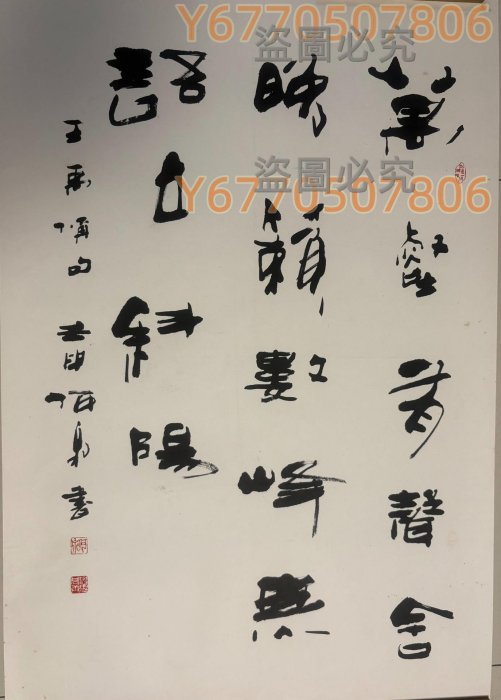 Y6770507806
盜圖必究
盜圖必究
Y6770507806
萬壑有聲含
晚籟數峰無
語立斜陽
王禹偁句 泉書